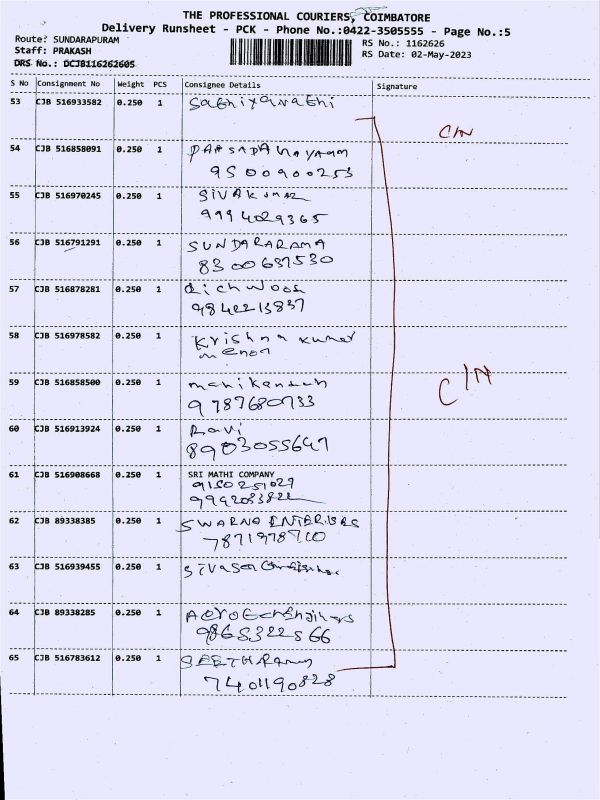 THE PROFESSIONAL COURIERS, COIMBATORE
Delivery Runsheet - PCK - Phone No.:0422-3505555 - Page No.:5
Route: SUNDARAPURAM
RS No.: 1162626
Staff: PRAKASH
RS Date: 02-May-2023
DRS No.: DCJB116262605
S No Consignment No Weight PCS Consignee Details Signature
53 CJB 516933582 0.250 1
C/N
54 CJB 516858091 0.250 1
9500900253
55 CJB 516970245 0.250 1 SIVAKUMAR
9994029365
56 CJB 516791291 0.250 1 SUNDARARAMA
8300637530
57 CJB 516878281 0.250 1 Richwood
9842213837
58 CJB 516978582 0.250 1 Krishna Kumar
menon
59 CJB 516858500 0.250 1 manikandan
9787680733
C/N
60 CJB 516913924 0.250 1 Ravi
8903055647
61 CJB 516908668 0.250 1 SRI MATHI COMPANY
9150251029
62 CJB 89338385 0.250 1 SWARNA
63 CJB 516939455 0.250 1
64 CJB 89338285 0.250 1
9865322566
65 CJB 516783612 0.250 1
7401190828